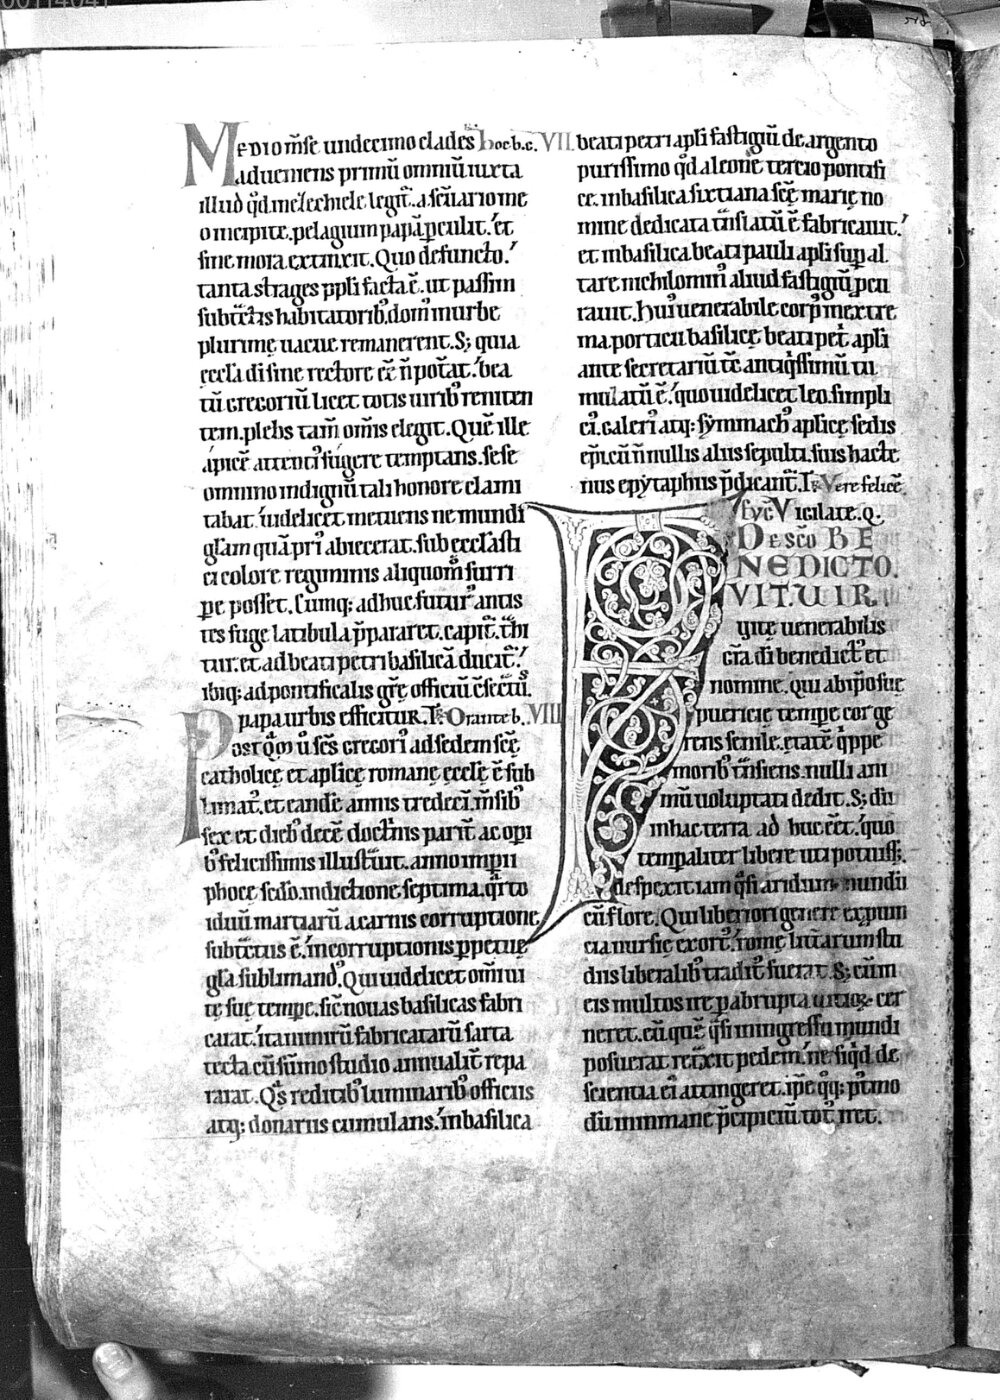 00114041
Medio m̄se undecimo clades hoc b.c. VII.
adueniens primū omniū iuxta
illud q̄d in ezechiele legit᷑. a sc̄uario me
o incipite. pelagium papā p̲culit. et
sine mora extinxit. Quo defuncto.
tanta strages ppl̄i facta ē. ut passim
subtractis habitatorib; domꝰ in urbe
plurimę uacuę remanerent. S; quia
eccl̄a di sine rectore eē n̄ poterat. bea
tū gregoriū licet totis uirib; reniten
tem. plebs tam̄ om̄is elegit. Quē ille
apicē attentiꝰ fugere temptans. sese
omnino indignū tali honore clami
tabat. uidelicet metuens ne mundi
gl̄am quā priꝰ abiecerat. sub ęccl̄asti
ci colore regiminis aliquom̄ surri
pe posset. Cumq; adhuc futurꝰ antis
tes fugę latibula p̄pararet. capit᷑. t̄hi
tur. et ad beati petri basilicā ducit᷑.
ibiq; ad pontificalis gr̄ę officiū c̄secratꝰ.
papa urbis efficitur. R̄ Orante b. VIII
Postq̄m u͛ sc̄s gregoriꝰ ad sedem sc̄ę
catholicę et apl̄icę romanę ęccl̄ę ē sub
limatꝰ. et eandē annis tredeci. m̄sib;
sex et dieb; decē doct̄nis parit᷑ ac opi
b; felicissimis illustrauit. anno imperii
phoce sc̄do. indictione septima. q̄rto
iduū martiarū a carnis corruptione
subtractus ē. incorruptionis p̲petuę
gl̄a sublimandꝰ. Qui uidelicet om̄i ui
tę suę tempe. sic̄ nouas basilicas fabri
carat. ita nimirū fabricatarū sarta
tecta cū sūmo studio annualit᷑ repa
rarat. Q̄s reditib; luminarib; officiis
atq; donariis cumulans. in basilica
beati petri apl̄i fastigiū de argento
purissimo q̄d a leone tercio pontifi
ce in basilica sixtiana sc̄ę marię no
mine dedicata t̄nslatū ē fabricauit.
et in basilica beati pauli apl̄i sup̲ al
tare nichilominꝰ aliud fastigiū p̲cu
rauit. huiꝰ uenerabile corpꝰ in extre
ma porticu basilicę beati pet͛ apl̄i
ante secretariū tc̄ antiq̄ssimū tu
mulatū ē. quo uidelicet leo. simpli
ciꝰ. galeriꝰ atq; symmachꝰ apl̄icę sedis
ep̄i. cū n̄nullis aliis sepulti. suis hacte
nus epytaphiis p̄dicant᷑. R̄ Vere felicē.
Eyc̄ Vigilate. q.
De sc̄o BE
NEDICTO.
VIT. UIR
uitę uenerabilis
gr̄a di benedictꝰ et
nomine. qui ab ip̄o suę
puericię tempe cor ge
rens senile. ętatē q̄ppe
morib; t̄nsiens. nulli ani
mū uoluptati dedit. S; dū
in hac terra adhuc eet. quo
tempaliter libere uti potuiss;.
despexit iam q̄si aridum mundū
cū flore. Qui liberiori genere ex p̲uin
cia nursię exortꝰ. romę litt̄arum stu
diis liberalib; traditꝰ fuerat. S; cū in
eis multos ire p̲ abrupta uitiorꝝ cer
neret. eū quē q̄si in ingressu mundi
posuerat retraxit pedem. ne siq̄d de
scientia eiꝰ attingeret. ip̄e q̄q; p̄tmo
dū in inmane p̄cipiciū totꝰ iret.